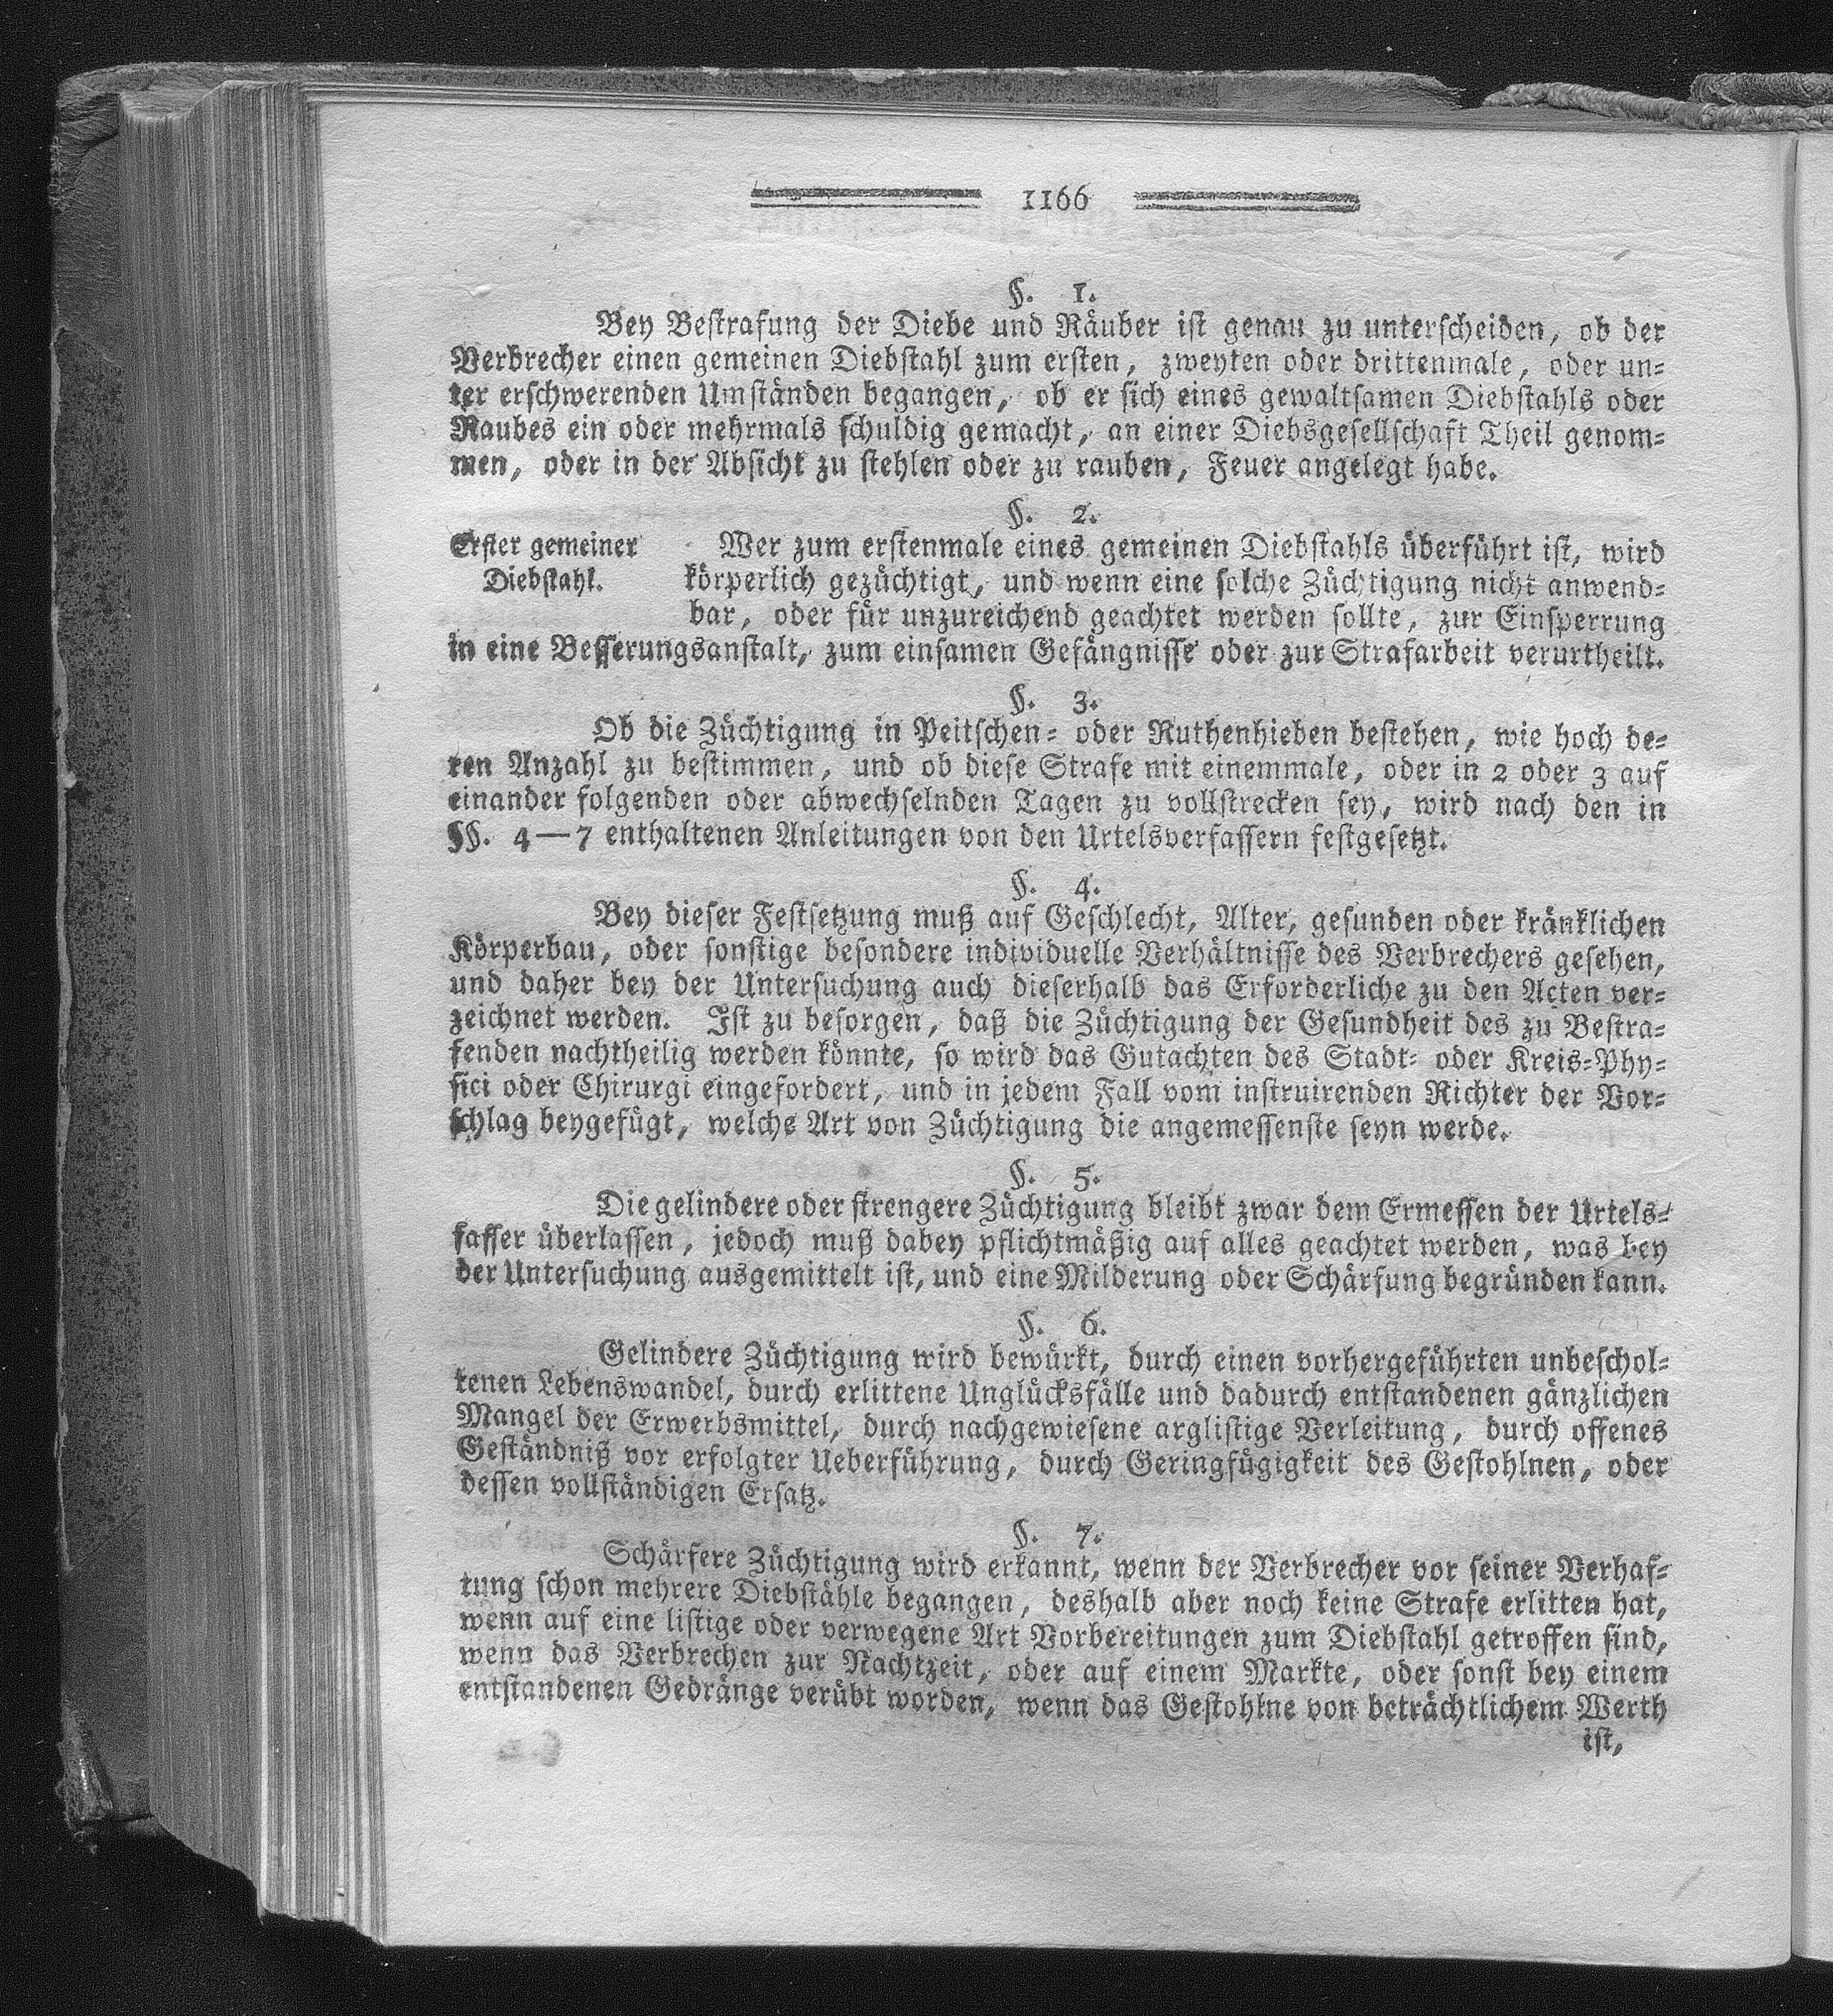 1166
§. 1.
Bey Bestrafung der Diebe und Räuber ist genau zu unterscheiden, ob der
Verbrecher einen gemeinen Diebstahl zum ersten, zweyten oder drittenmale, oder un-
ter erschwerenden Umständen begangen, ob er sich eines gewaltsamen Diebstahls oder
Raubes ein oder mehrmals schuldig gemacht, an einer Diebsgesellschaft Theil genom-
men, oder in der Absicht zu stehlen oder zu rauben, Feuer angelegt habe.
§. 2.
Erster gemeiner
Diebstahl.
Wer zum erstenmale eines gemeinen Diebstahls überführt ist, wird
körperlich gezüchtigt, und wenn eine solche Züchtigung nicht anwend-
bar, oder für unzureichend geachtet werden sollte, zur Einsperrung
in eine Besserungsanstalt, zum einsamen Gefängnisse oder zur Strafarbeit verurtheilt.
§. 3.
Ob die Züchtigung in Peitschen- oder Ruthenhieben bestehen, wie hoch de-
ren Anzahl zu bestimmen, und ob diese Strafe mit einemmale, oder in 2 oder 3 auf
einander folgenden oder abwechselnden Tagen zu vollstrecken sey, wird nach den in
§§. 4—7 enthaltenen Anleitungen von den Urtelsverfassern festgesetzt.
§. 4.
Bey dieser Festsetzung muß auf Geschlecht, Alter, gesunden oder kränklichen
Körperbau, oder sonstige besondere individuelle Verhältnisse des Verbrechers gesehen,
und daher bey der Untersuchung auch dieserhalb das Erforderliche zu den Acten ver-
zeichnet werden. Ist zu besorgen, daß die Züchtigung der Gesundheit des zu Bestra-
fenden nachtheilig werden könnte, so wird das Gutachten des Stadt- oder Kreis-Phy-
sici oder Chirurgi eingefordert, und in jedem Fall vom instruirenden Richter der Vor-
schlag beygefügt, welche Art von Züchtigung die angemessenste seyn werde.
§. 5.
Die gelindere oder strengere Züchtigung bleibt zwar dem Ermessen der Urtels-
fasser überlassen, jedoch muß dabey pflichtmäßig auf alles geachtet werden, was bey
der Untersuchung ausgemittelt ist, und eine Milderung oder Schärfung begründen kann.
§. 6.
Gelindere Züchtigung wird bewürkt, durch einen vorhergeführten unbeschol-
tenen Lebenswandel, durch erlittene Unglücksfälle und dadurch entstandenen gänzlichen
Mangel der Erwerbsmittel, durch nachgewiesene arglistige Verleitung, durch offenes
Geständniß vor erfolgter Ueberführung, durch Geringfügigkeit des Gestohlnen, oder
dessen vollständigen Ersatz.
§. 7.
Schärfere Züchtigung wird erkannt, wenn der Verbrecher vor seiner Verhaf-
tung schon mehrere Diebstähle begangen, deshalb aber noch keine Strafe erlitten hat,
wenn auf eine listige oder verwegene Art Vorbereitungen zum Diebstahl getroffen sind,
wenn das Verbrechen zur Nachtzeit, oder auf einem Markte, oder sonst bey einem
entstandenen Gedränge verübt worden, wenn das Gestohlne von beträchtlichem Werth
ist,